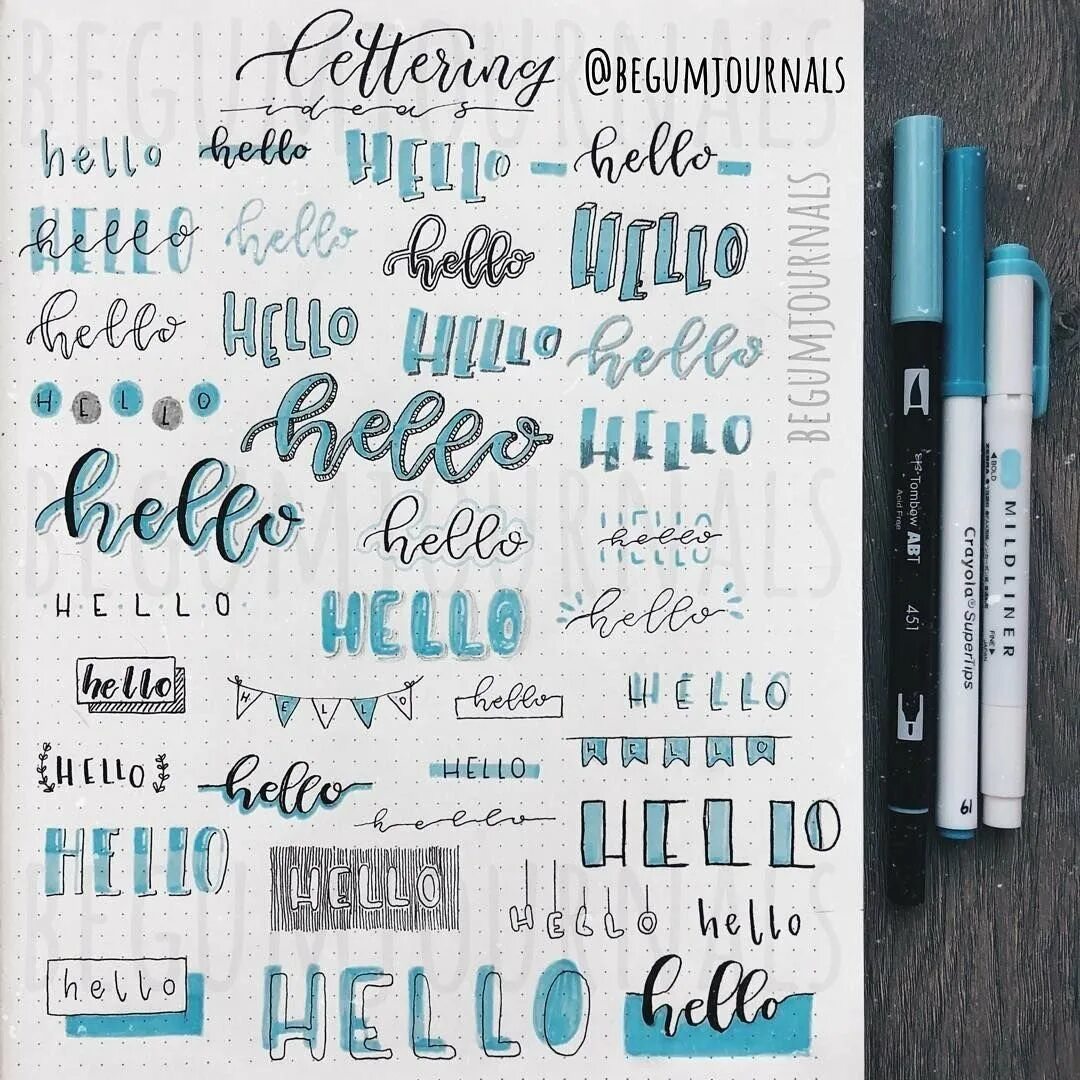 lettering @BEGUMJOURNALS
ideas
hello hello HELLO hello
HELLO hello hello hello HELLO
hello HELLO HELLO hello
HELLO hello HELLO
hello hello HELLO hello
HELLO HELLO hello
hello HELLO hello HELLO
HELLO hello HELLO HELLO
hello
HELLO HELLO HELLO
HELLO hello
hello HELLO hello
BEGUMJOURNALS
BEGUMJOURNALS
BEGUMJOURNALS
BEGUMJOURNALS
Tombow ABT 451
Acid Free
Crayola® SuperTips 61
BOLD MILDLINER FINE
JAPAN